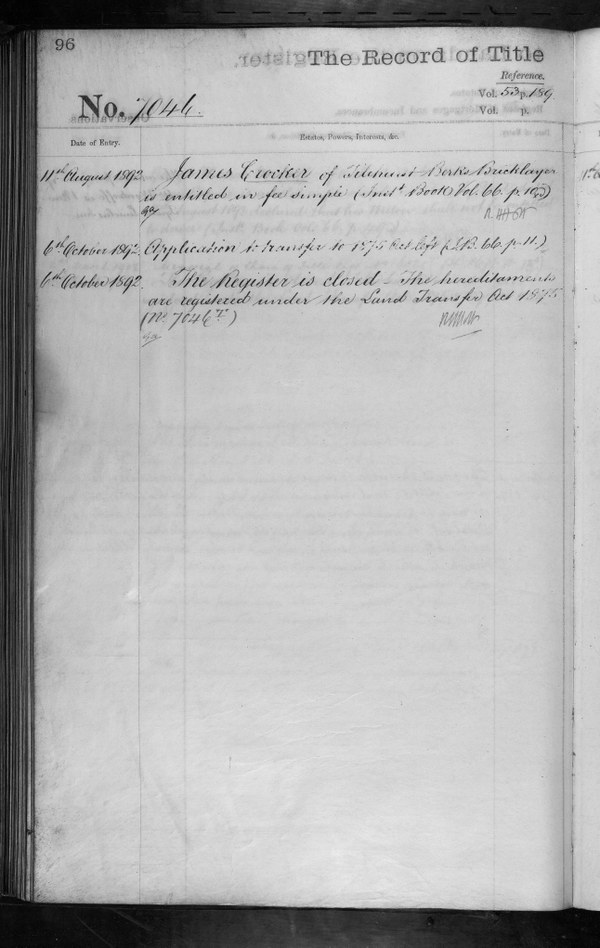 96
The Record of Title
Reference.
Vol. 53 p. 189
No. 7046.
Vol. p.
Date of Entry.
Estates, Powers, Interests, &c.
11th August 1892 James Crocker of Tilehurst Berks Bricklayer
is entitled in fee simple (Inst. Book Vol. 66. p.
6th October 1892 Application to transfer to 1875 Act left (I.B. 66. p. 11.)
6th October 1892 The Register is closed – The hereditaments
are registered under the Land Transfer Act 1875
(No 7046 )